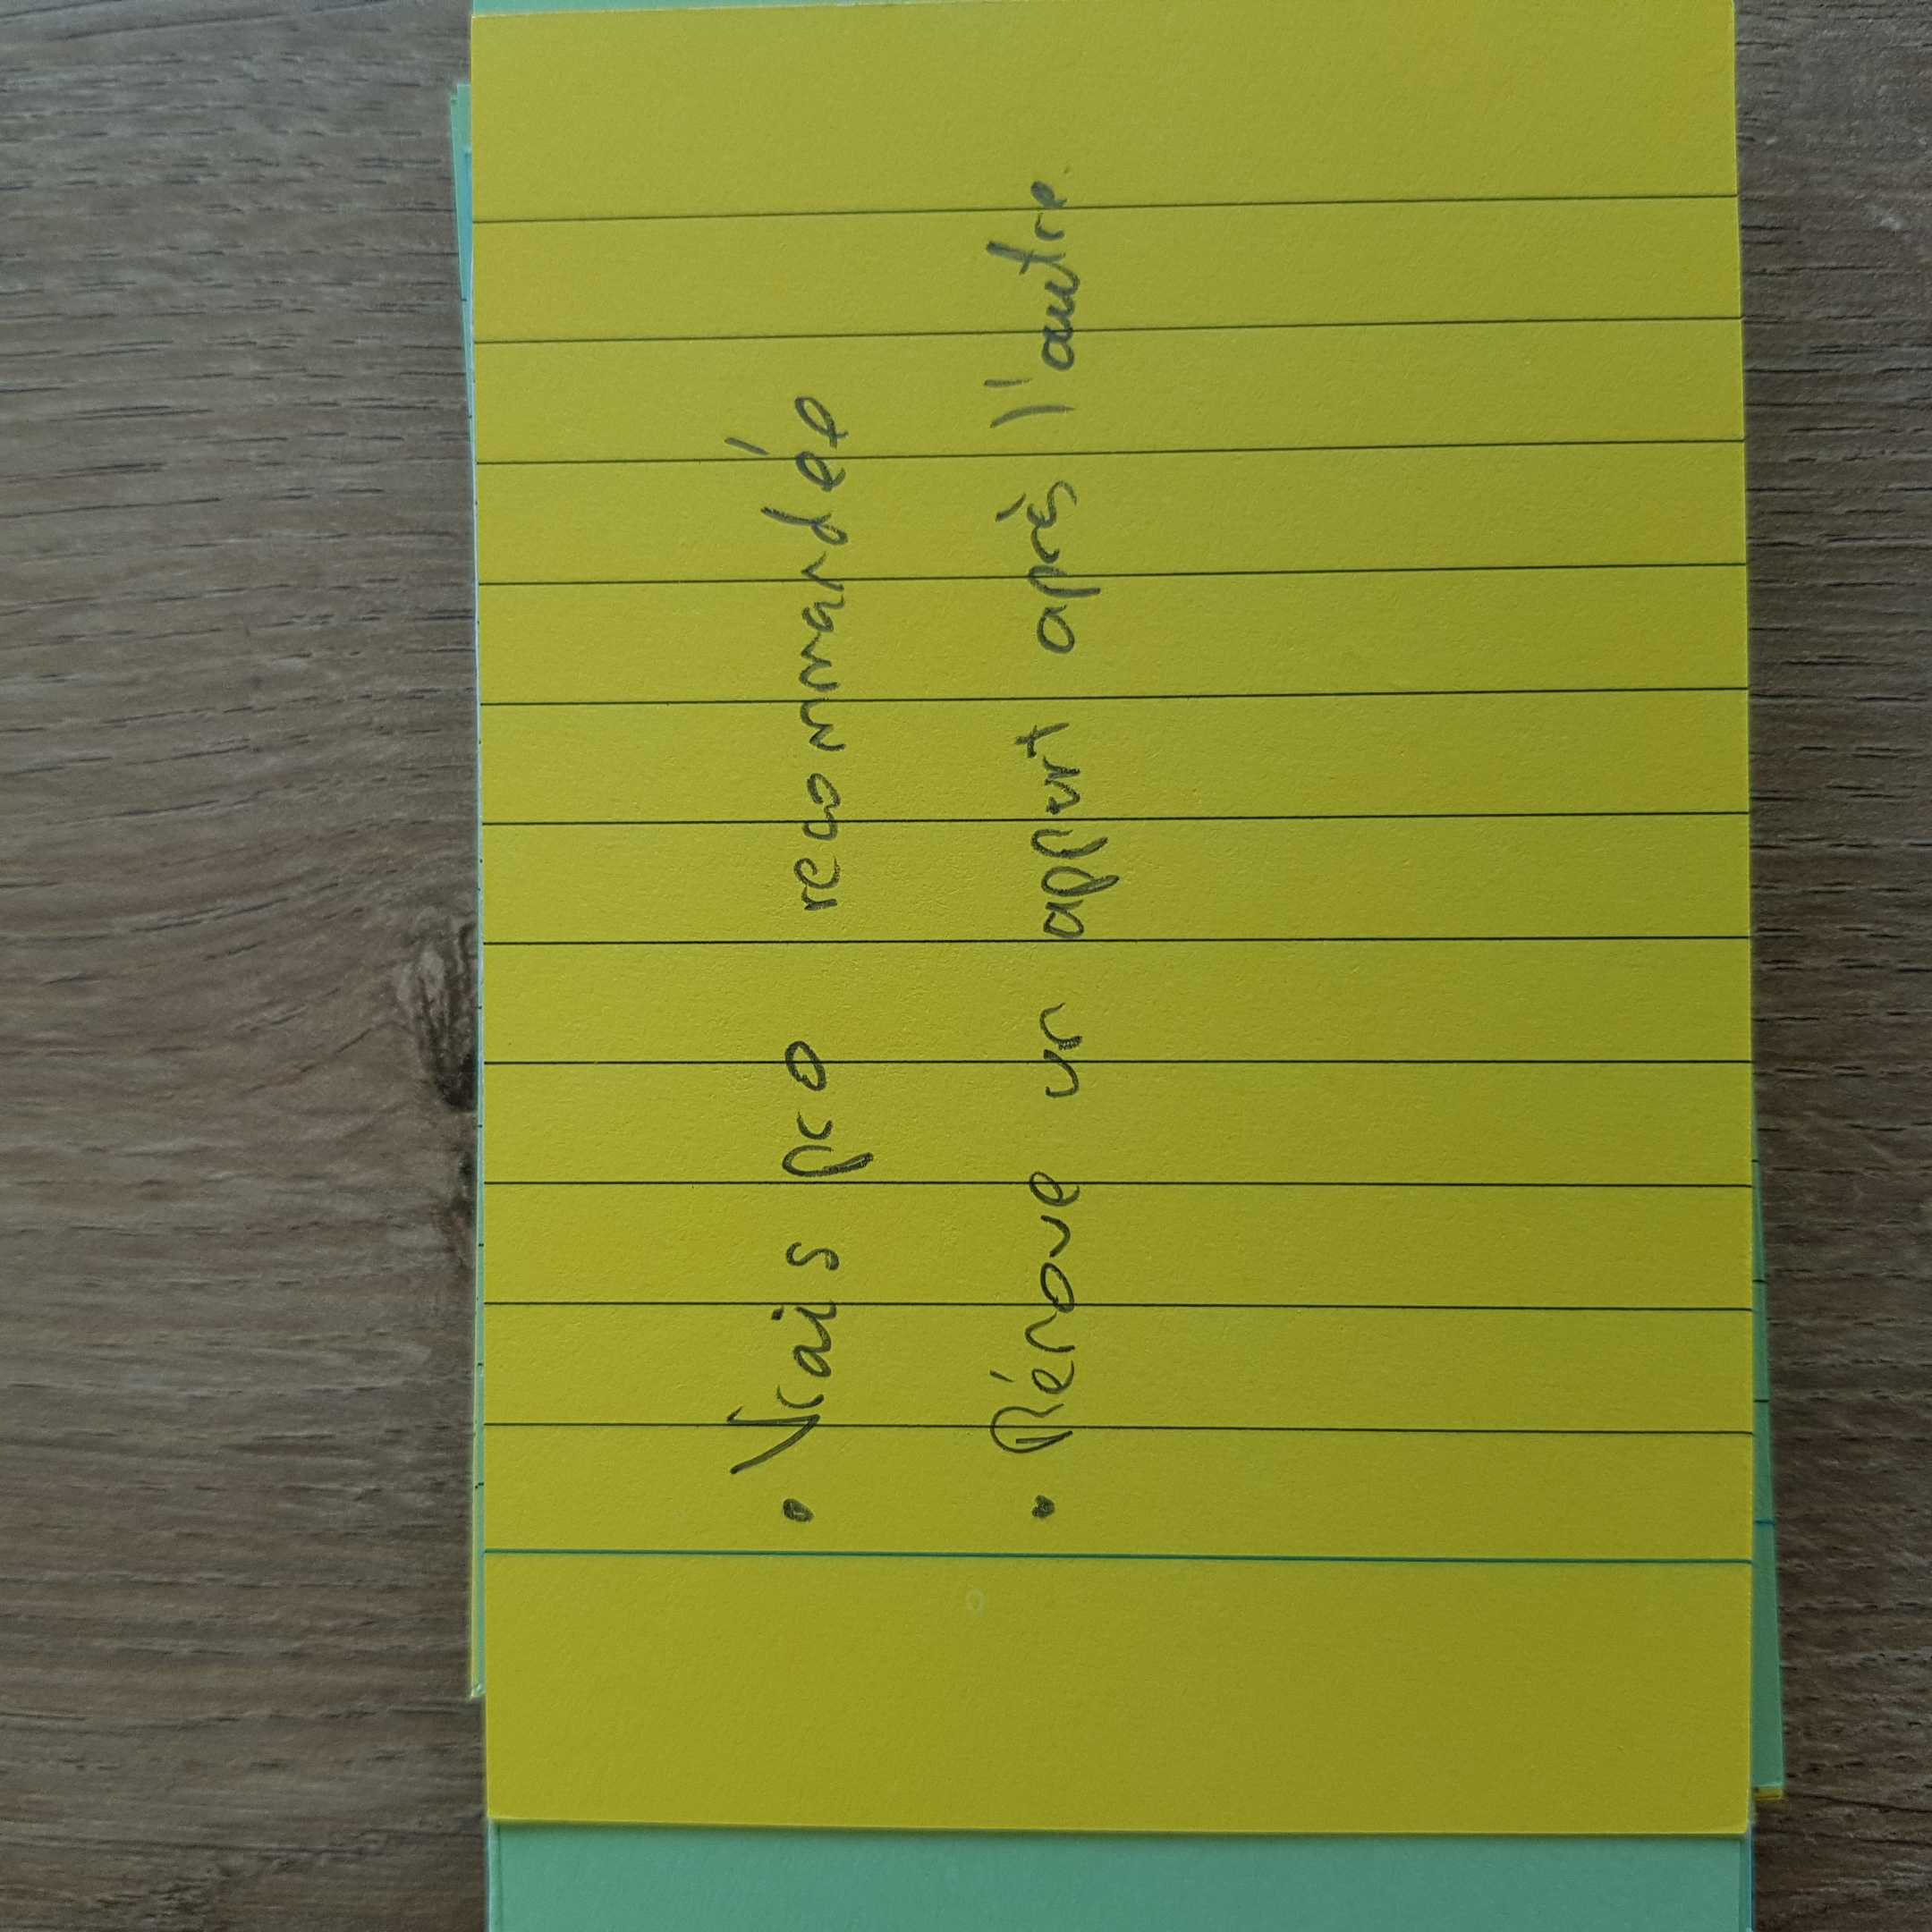 • Vrais pro recommandée
• Rénove un appart après l'autre.